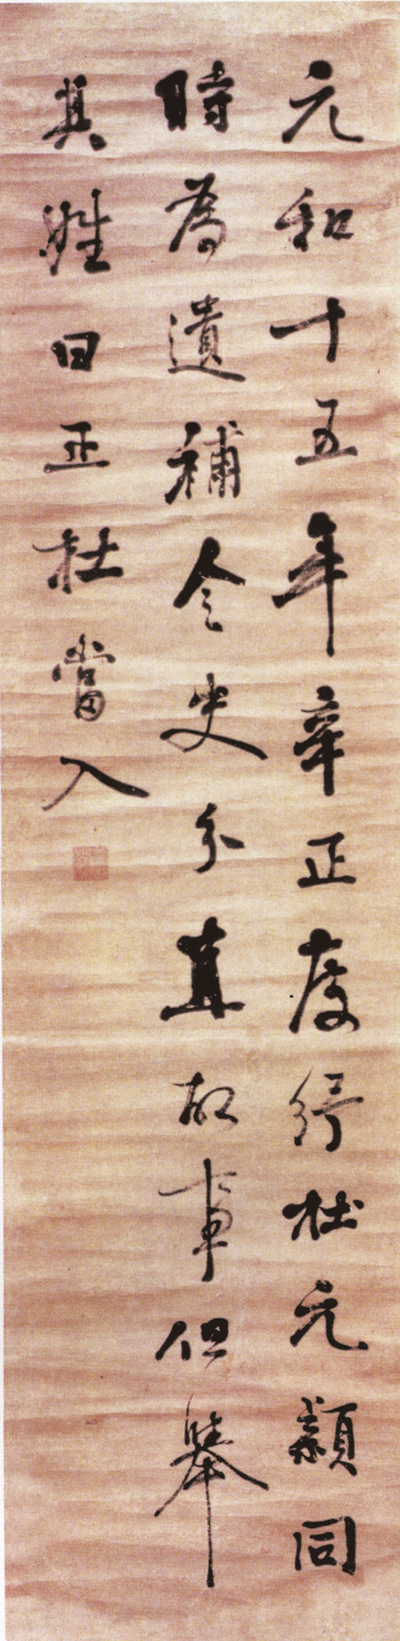 元和十五年辛正度紓杜元穎同
時為遺補令史分直故事但舉
其姓曰正杜當入